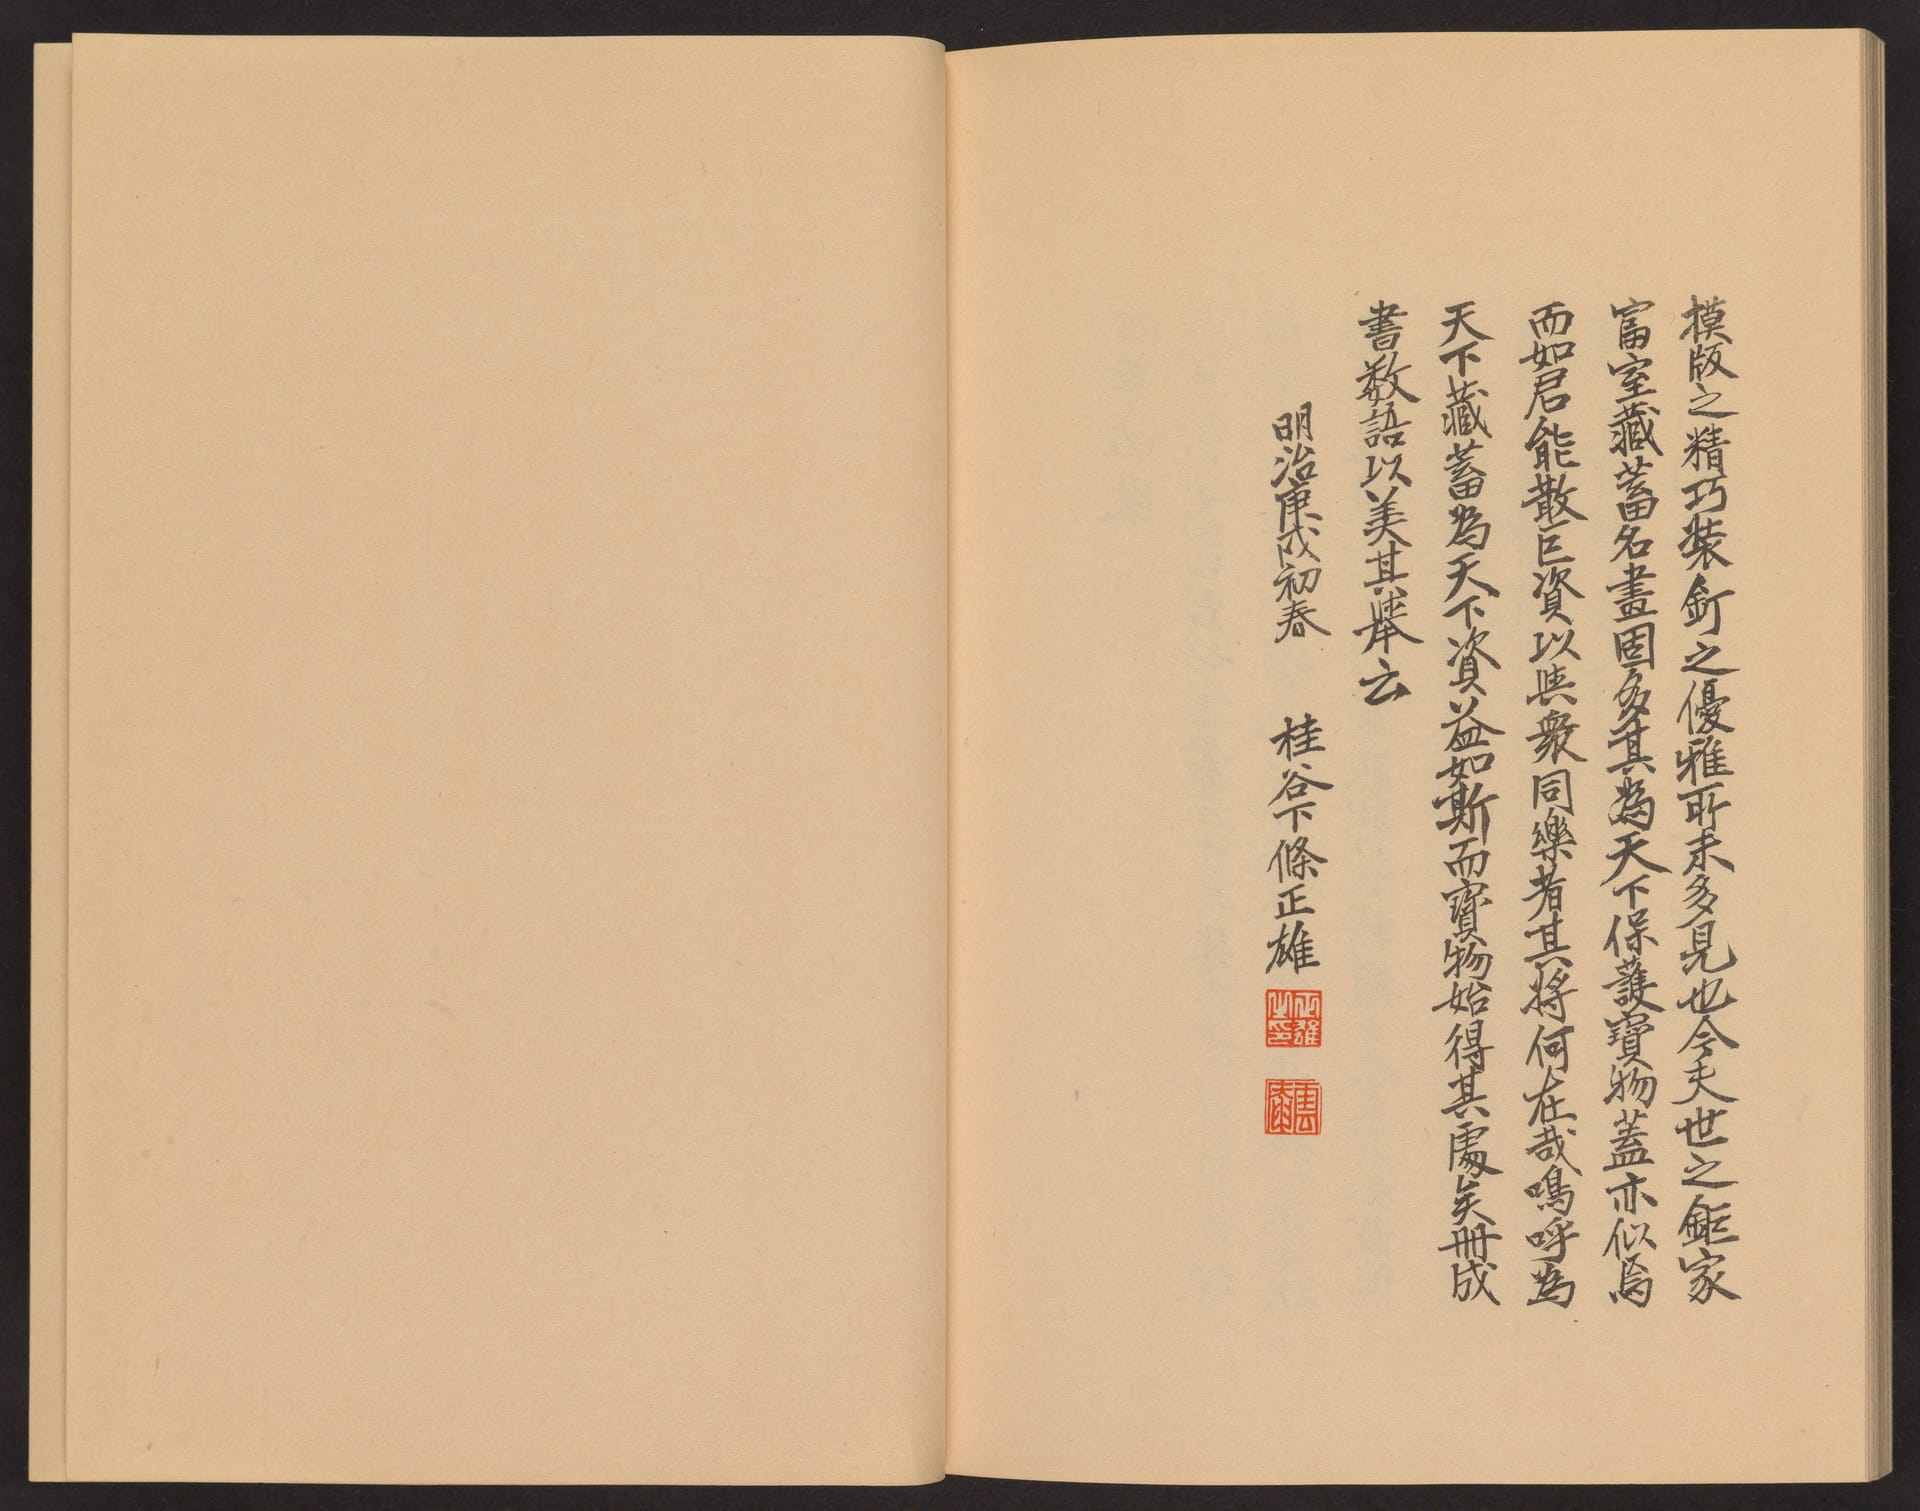 摸版之精巧裝釘之優雅所未多見也今夫世之鉅家
富室藏蓄名畫固多其為天下保護寶物蓋亦似焉
而如君能散巨資以與衆同樂者其將何在哉嗚呼為
天下藏蓄為天下資益如斯而寶物始得其處矣冊成
書数語以美其擧云
明治庚戌初春
桂谷下條正雄
正雄之印